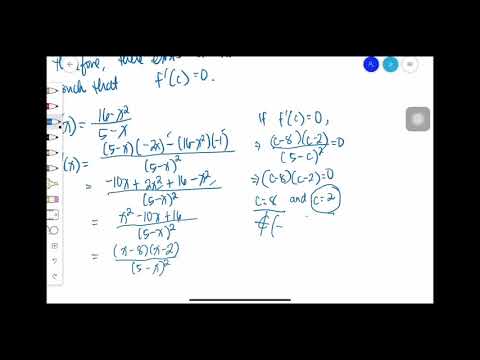 therefore, there exists
such that f'(c)=0.
(x) = \frac{16-x^2}{5-x}
'(x) = \frac{(5-x)(-2x)-(16-x^2)(-1)}{(5-x)^2}
= \frac{-10x+2x^2+16-x^2}{(5-x)^2}
= \frac{x^2-10x+16}{(5-x)^2}
= \frac{(x-8)(x-2)}{(5-x)^2}
If f'(c)=0,
⇒ \frac{(c-8)(c-2)}{(5-c)^2}=0
⇒(c-8)(c-2)=0
c=8 and c=2
∉(-